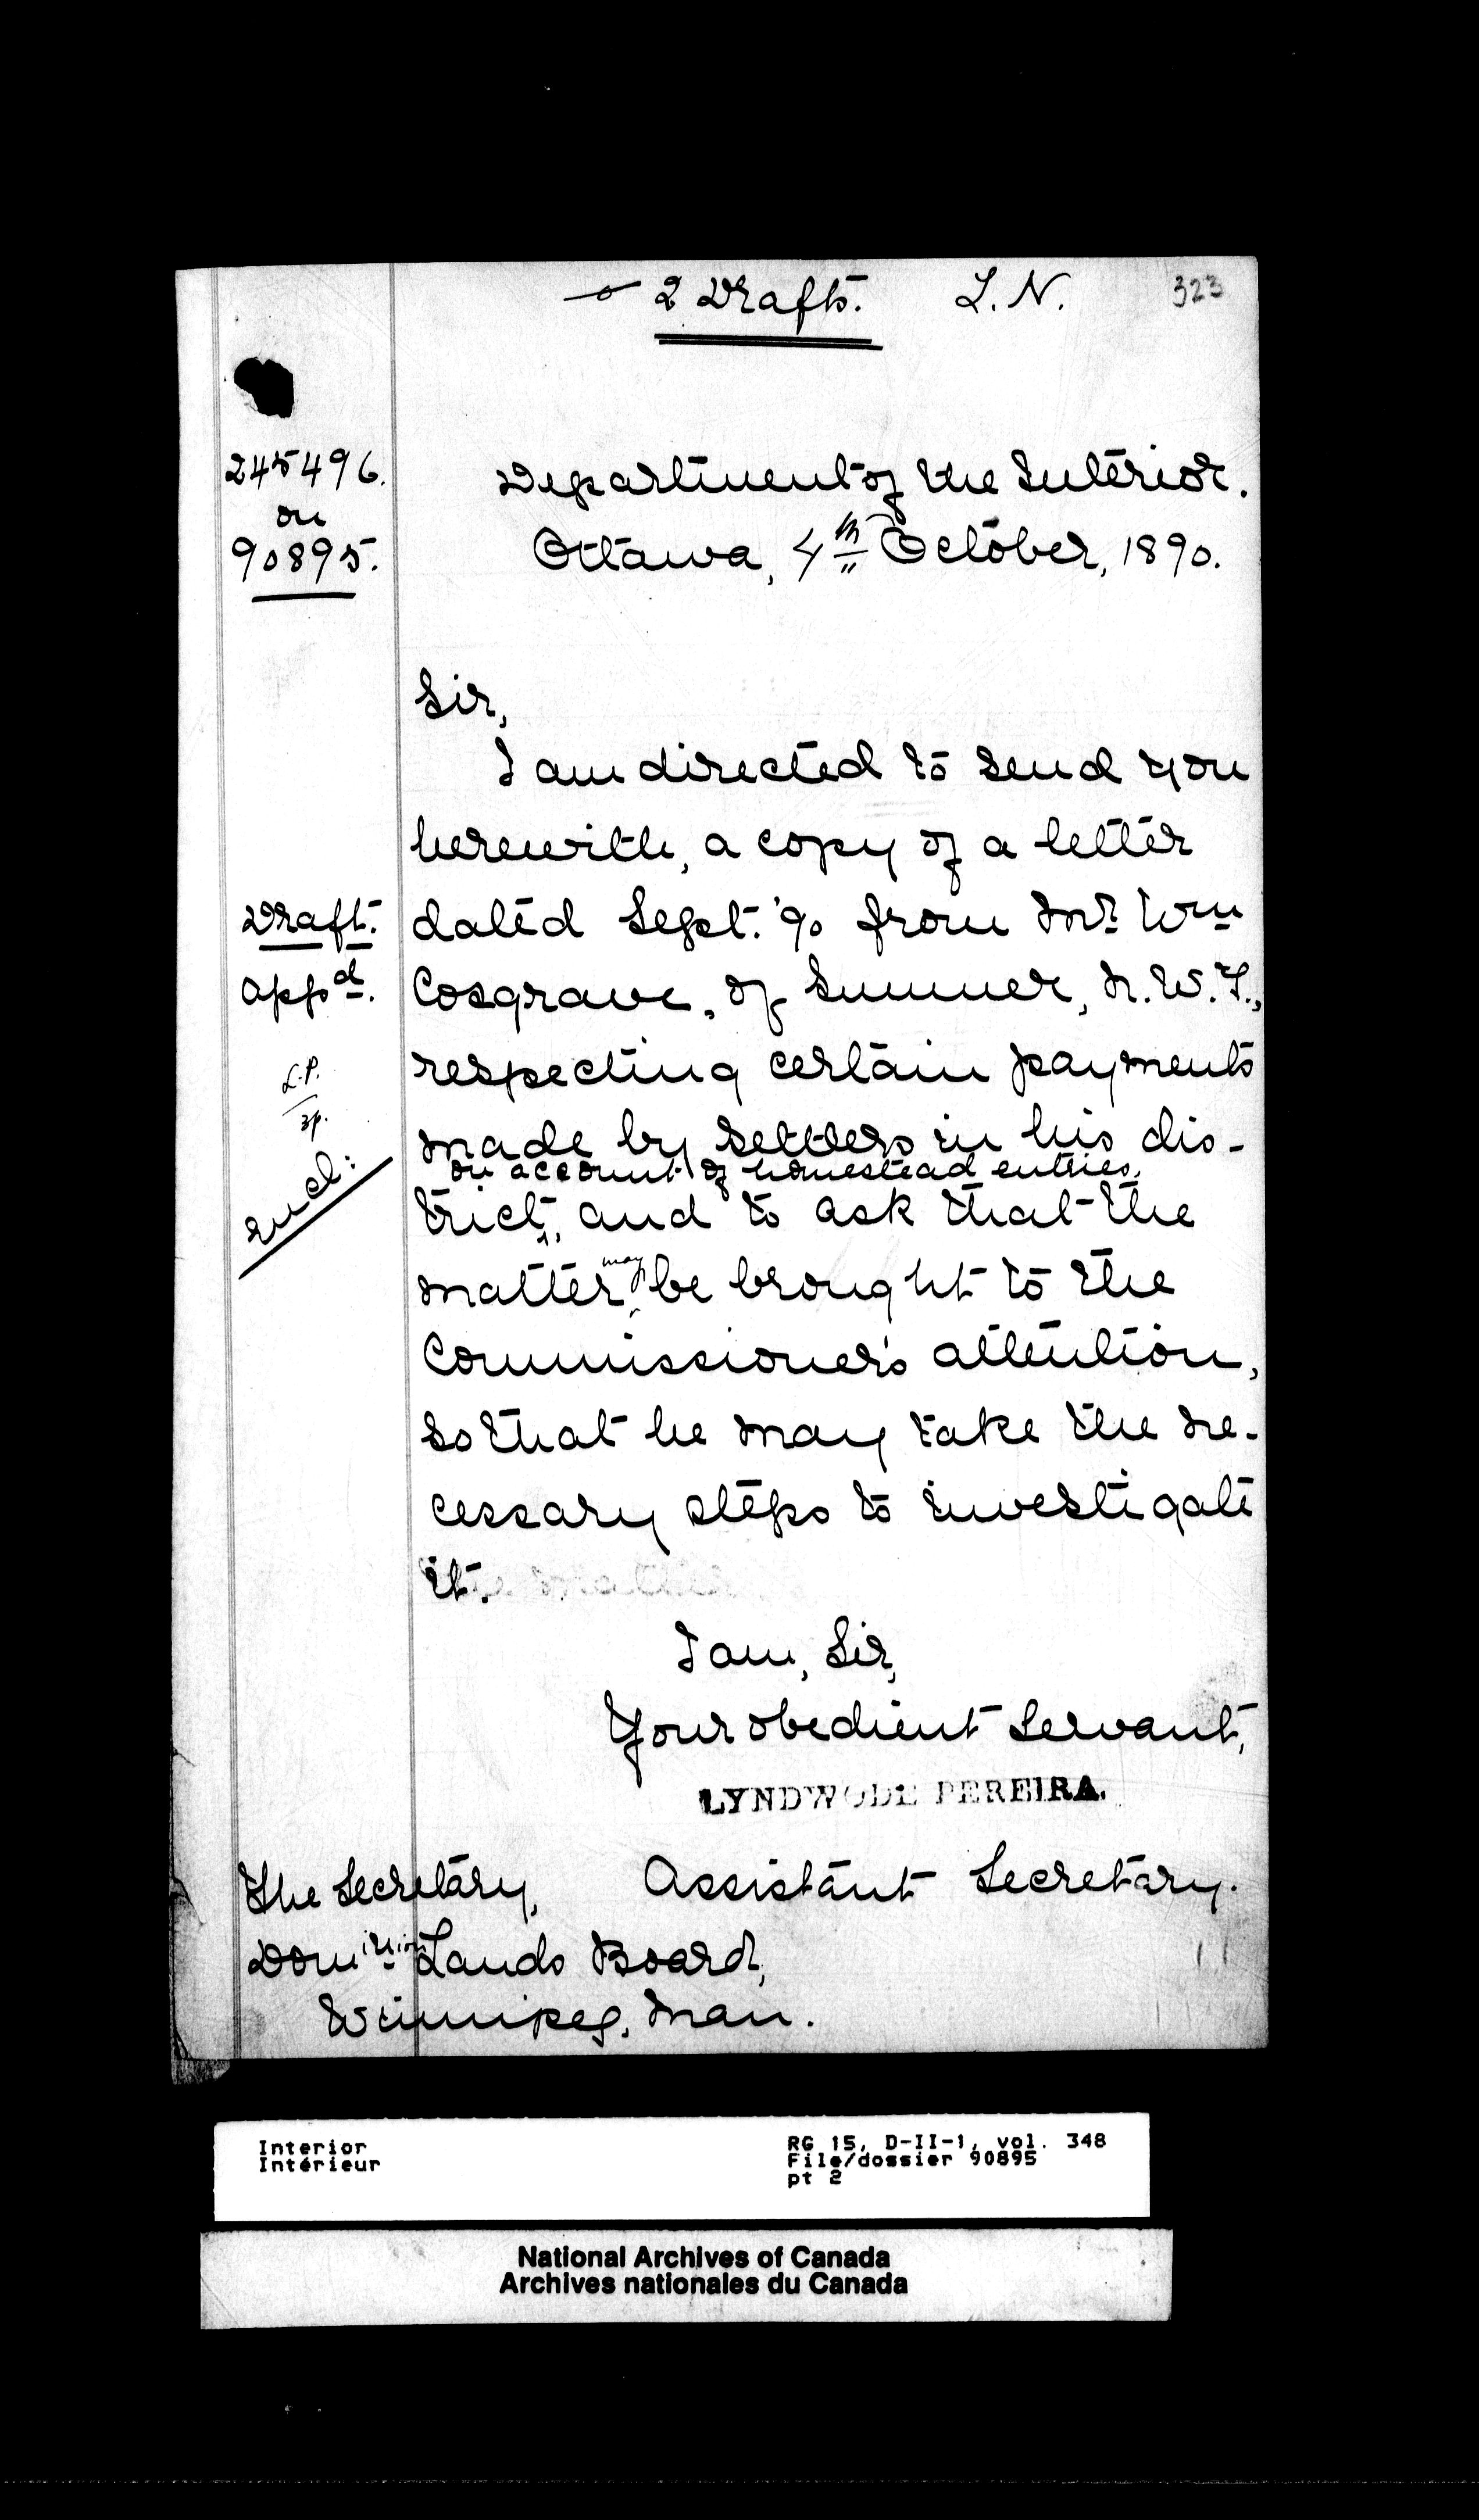 2 Drafts. L.N. 323
245496.
on
90895.
Department of the Interior.
Ottawa, 4th October, 1890.
Sir,
I am directed to send you
herewith, a copy of a letter
dated Sept. '90 from Mr. Wm
Cosgrave, of Sumner, N.W.T.,
respecting certain payments
made by settlers in his dis-
on account of homestead entries,
trict, and to ask that the
may
matter be brought to the
Commissioner's attention,
so that he may take the ne-
cessary steps to investigate
it.
Draft.
appd.
L.P.
Encl:
I am, Sir,
Your obedient Servant,
LYNDWODE PEREIRA.
Assistant Secretary.
The Secretary,
Dominion Lands Board,
Winnipeg, Man.
Interior
Intérieur
RG 15, D-II-1, vol. 348
File/dossier 90895
pt 2
National Archives of Canada
Archives nationales du Canada